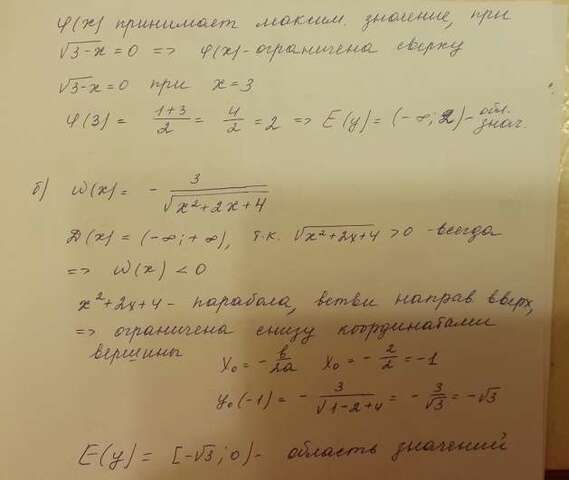 φ(x) принимает максим. значение, при
√3-x = 0 => φ(x) - ограничена сверху
√3-x = 0 при x = 3
φ(3) = (1+3)/2 = 4/2 = 2 => E(y) = (-∞; 2) - обл. знач.
б) ω(x) = - 3/√(x²+2x+4)
D(x) = (-∞; +∞), т.к. √(x²+2x+4) > 0 - всегда
=> ω(x) < 0
x²+2x+4 - парабола, ветви направ вверх,
=> ограничена снизу координатами
вершины x₀ = - b/2a x₀ = - 2/2 = -1
y₀(-1) = - 3/√(1-2+4) = - 3/√3 = -√3
E(y) = [-√3; 0) - область значений